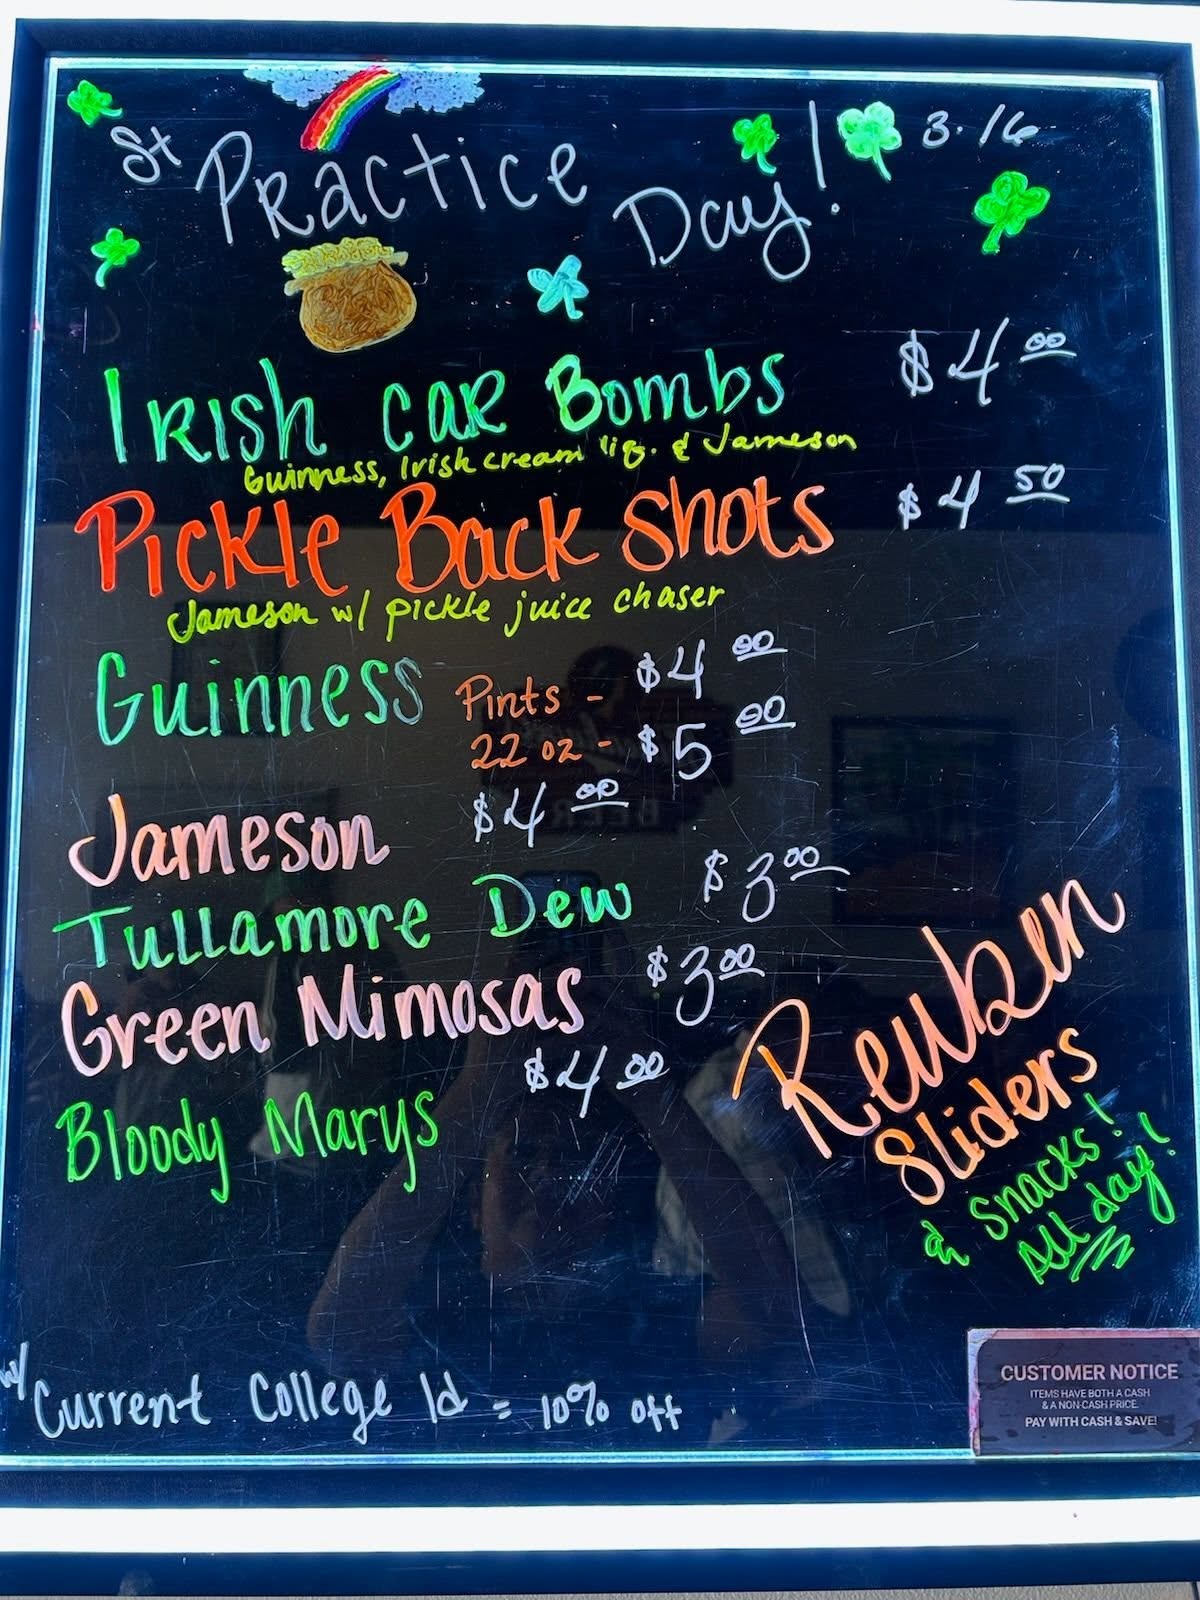 St Practice Day! 3.16
Irish Car Bombs $4.00
Guinness, Irish cream liq. & Jameson
Pickle Back Shots $4.50
Jameson w/ pickle juice chaser
Guinness Pints - $4.00
22 oz - $5.00
Jameson $4.00
Tullamore Dew $3.00
Green Mimosas $3.00
Bloody Marys $4.00
Reuben
Sliders
& Snacks!
All day!
w/ Current College Id = 10% off
CUSTOMER NOTICE
ITEMS HAVE BOTH A CASH
& A NON-CASH PRICE.
PAY WITH CASH & SAVE!